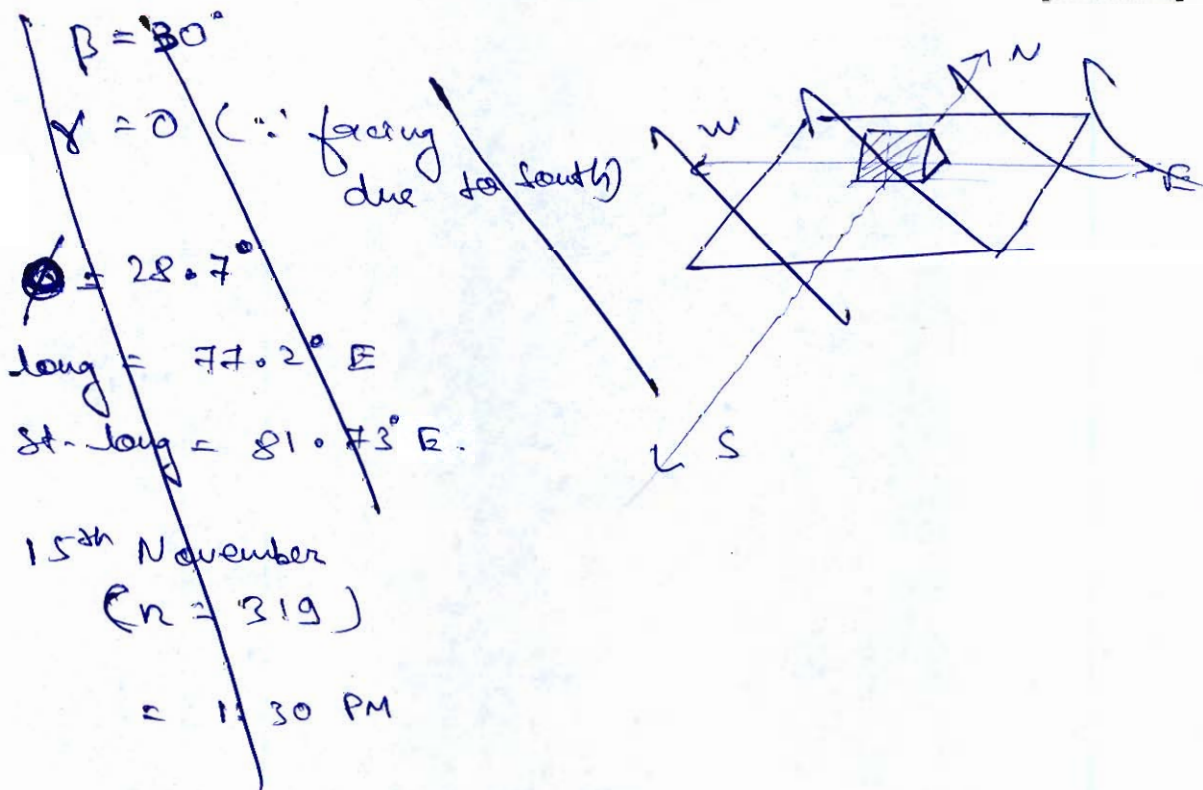 β = 30°
γ = 0 (∵ facing
due to south)
ϕ = 28.7°
long = 77.2° E
St-long = 81.73° E.
15th November
(n = 319)
= 1:30 PM
N
W
E
S